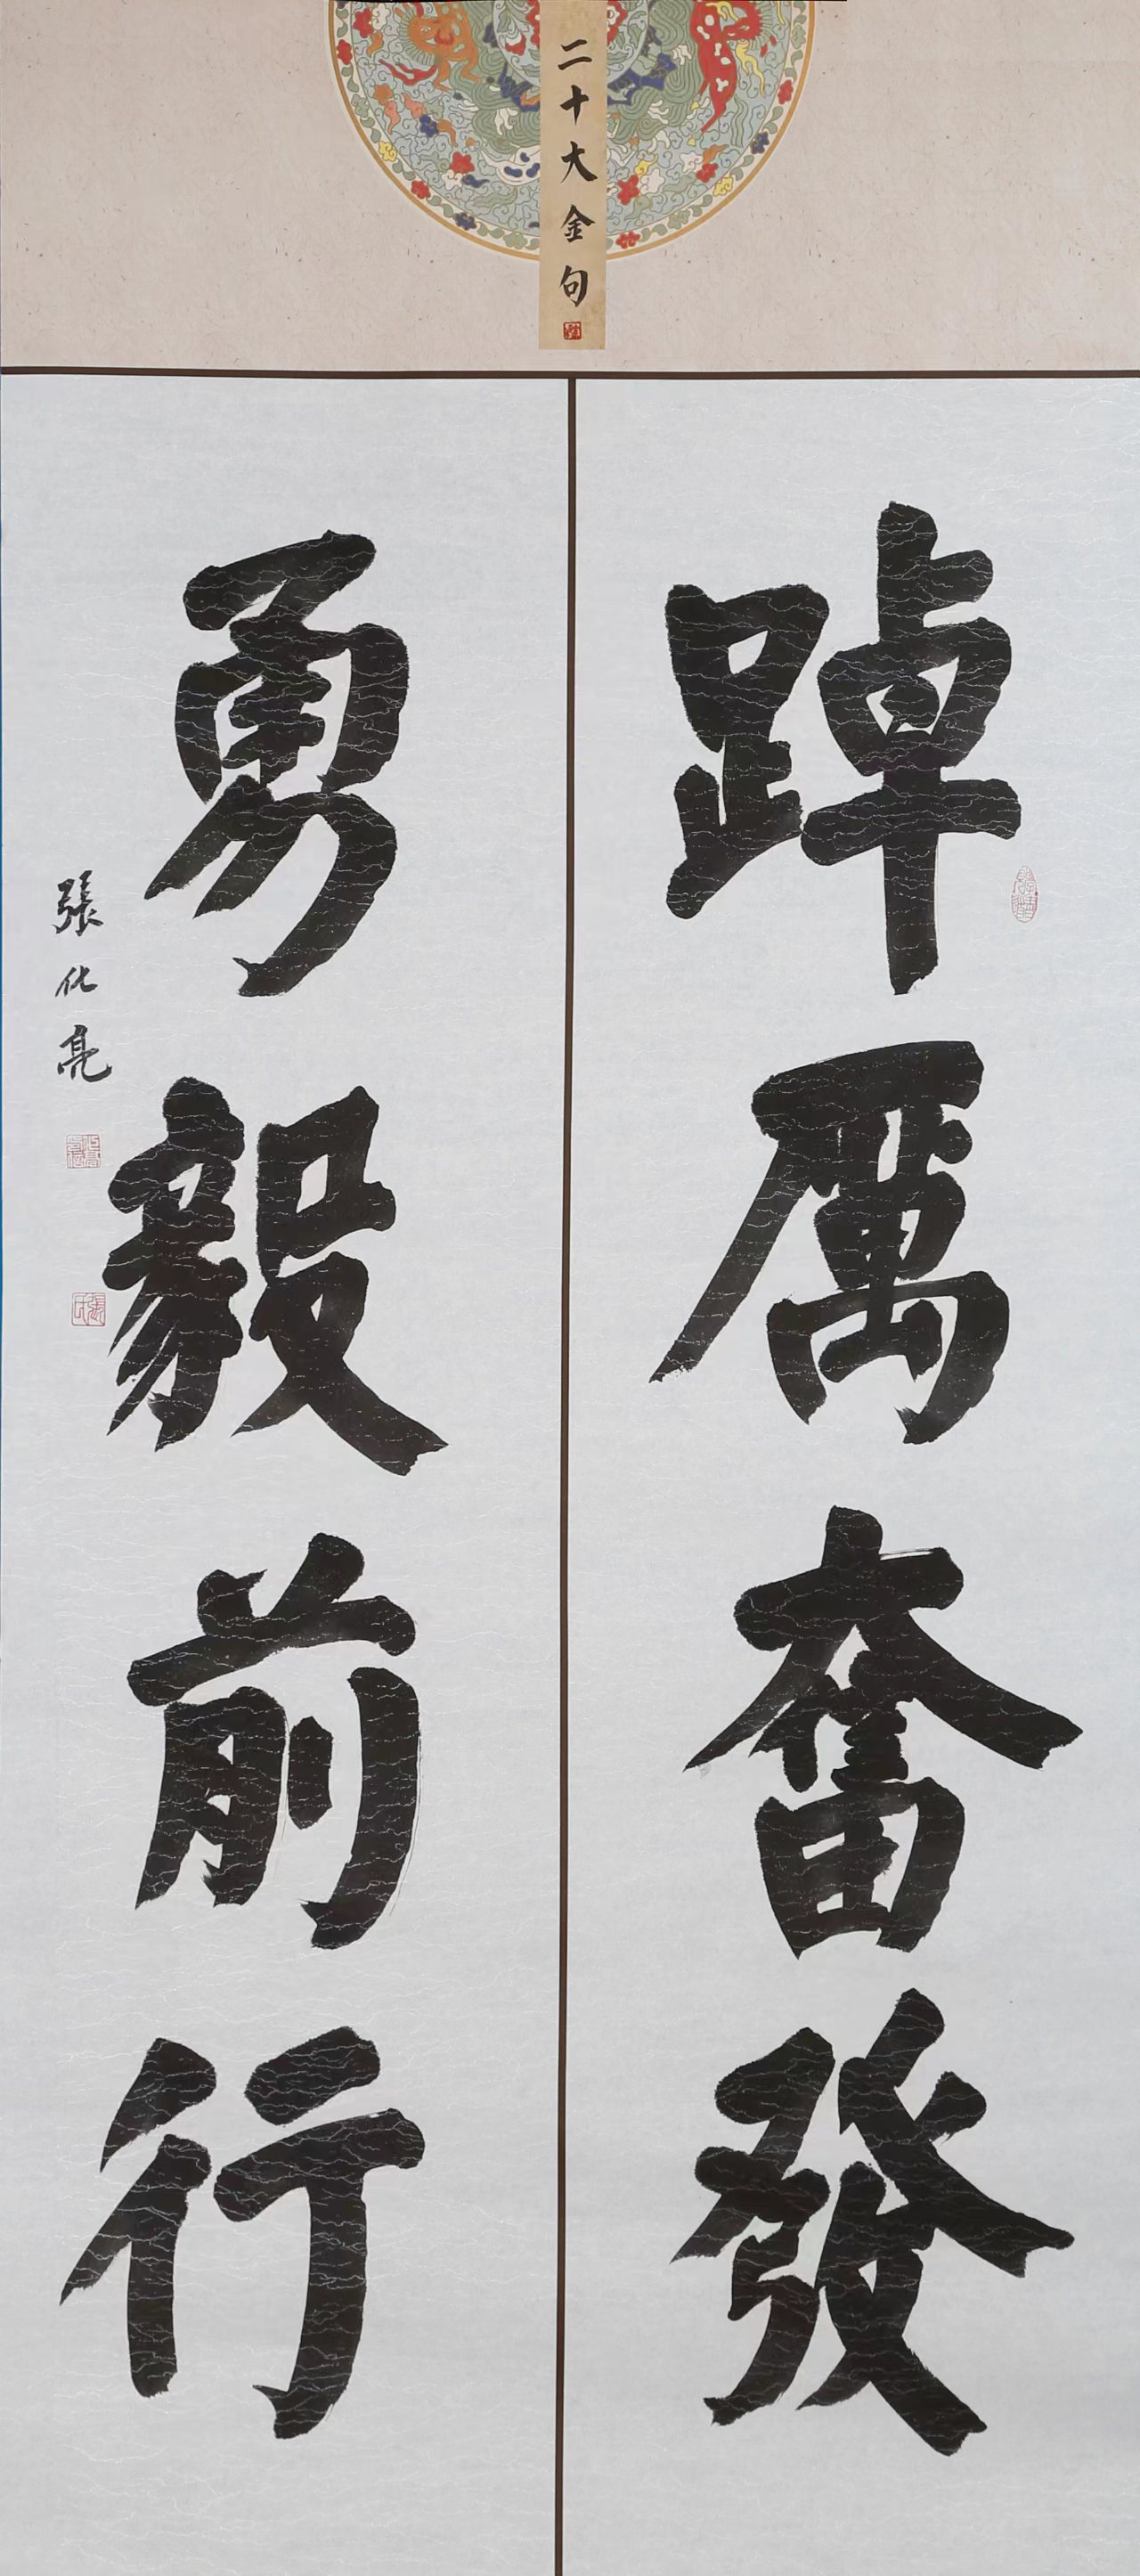 二十大金句
踔厲奮發
勇毅前行
張化亮